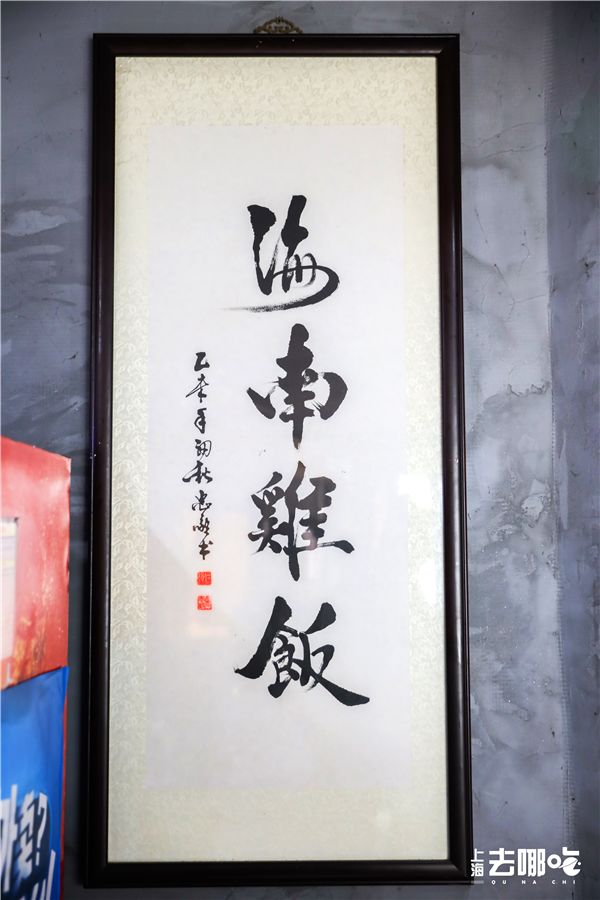 海南雞飯
乙未年初秋忠敬书
上海
去哪吃
QU NA CHI